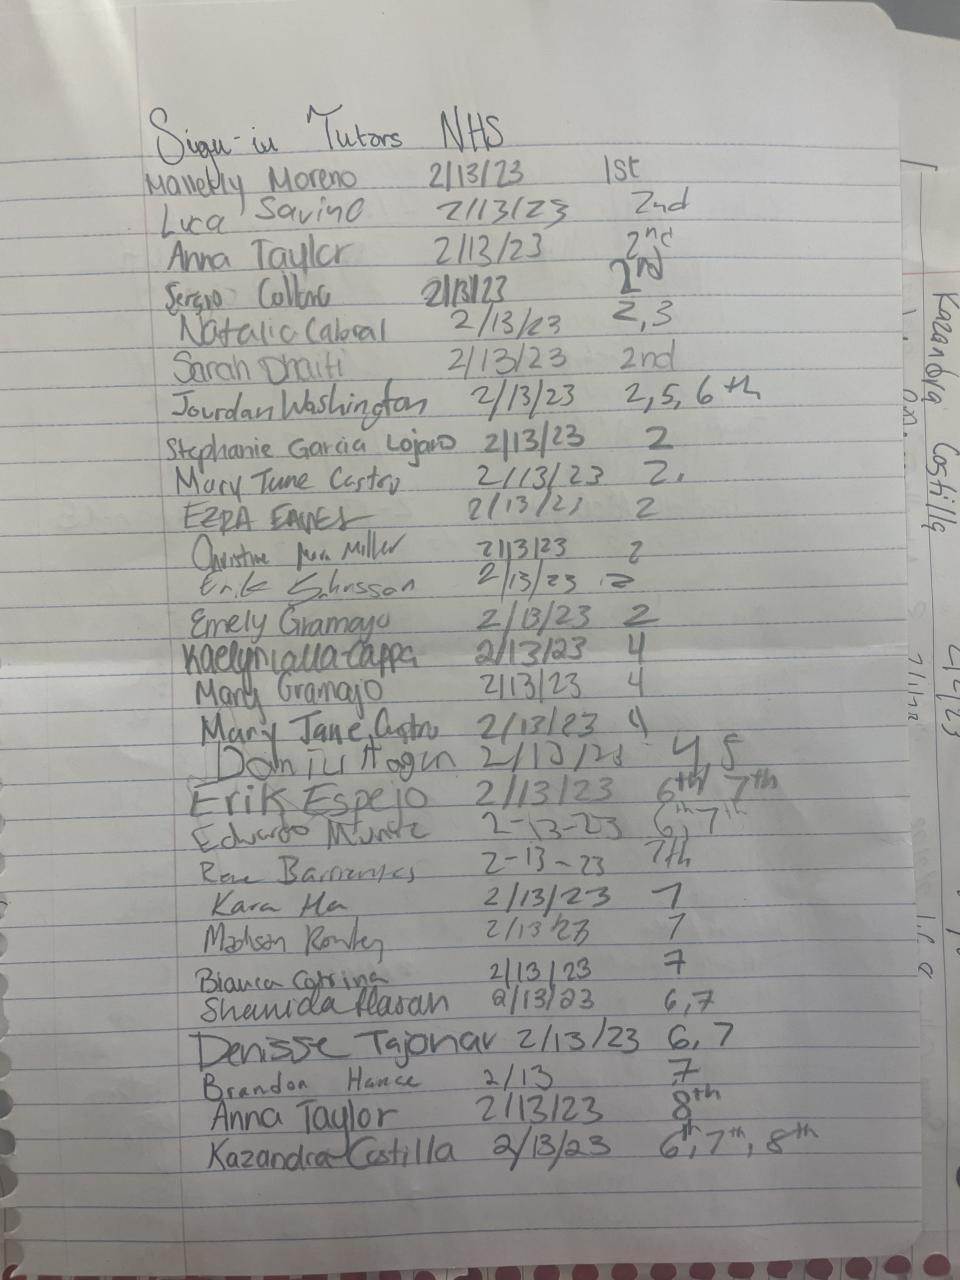 Sign-in Tutors NHS
Moreno 2/13/23 1st
Luca Savino 2/13/23 2nd
Anna Taylor 2/13/23 2nd
Sergio 2/13/23 2nd
Natalie Cabral 2/13/23 2,3
Sarah Dhaiti 2/13/23 2nd
Jourdan Washington 2/13/23 2,5,6th
Stephanie Garcia Lojano 2/13/23 2
Mary Jane Castro 2/13/23 2.
EZRA 2/13/23 2
Christine Miller 2/13/23 2
Erik 2/13/23 2
Emely Gramajo 2/13/23 2
2/13/23 4
Mary Gramajo 2/13/23 4
Mary Jane Castro 2/13/23 4
2/13/23 4,5
Erik Espejo 2/13/23 6th, 7th
Eduardo 2-13-23 6th, 7th
2-13-23 7th
Kara Ha 2/13/23 7
Madison Rowley 2/13/23 7
Bianca 2/13/23 7
Shamida Hasan 2/13/23 6,7
Denisse Tajonar 2/13/23 6,7
Brandon Hance 2/13 7
Anna Taylor 2/13/23 8th
Kazandra Costilla 2/13/23 6th, 7th, 8th
Kazandra Costilla